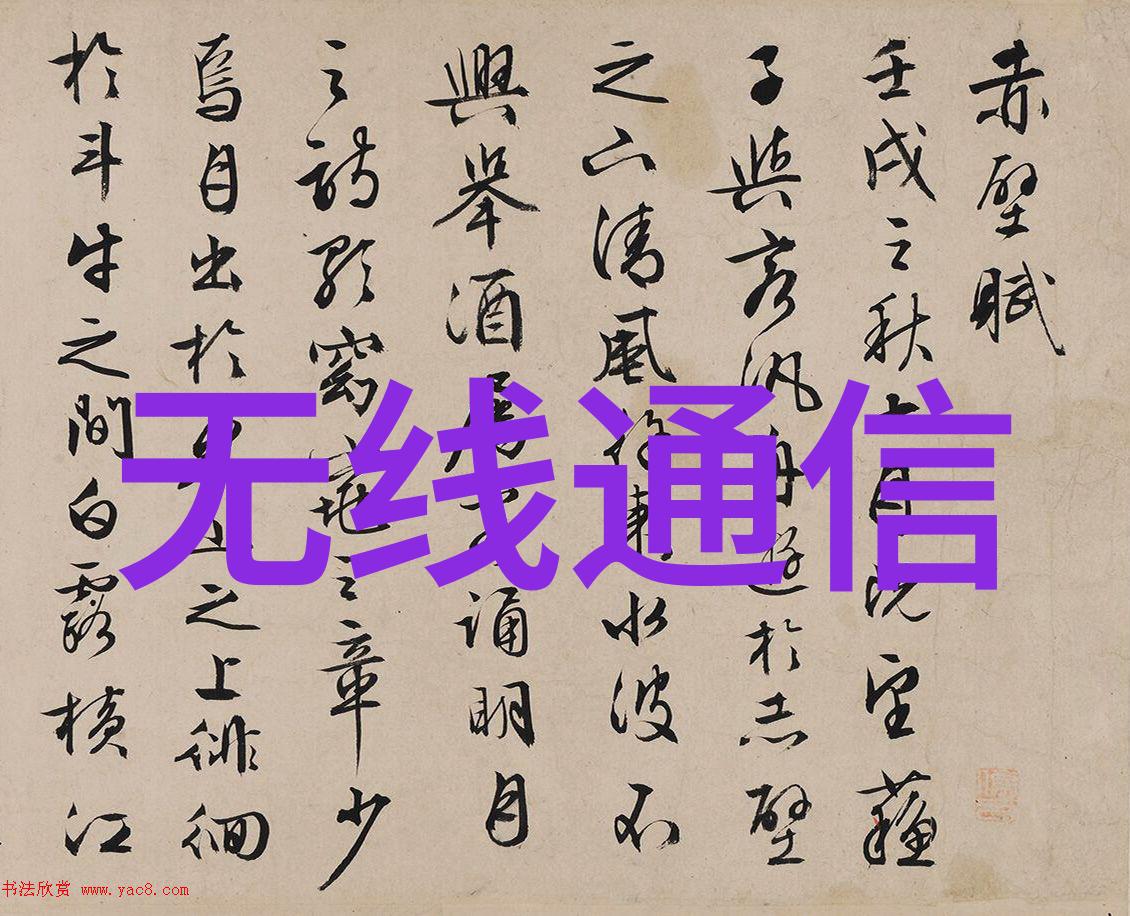 赤壁賦
壬戌之秋七月既望蘇
子與客汎舟遊於赤壁
之下清風徐來水波不
興舉酒屬客誦明月
之詩歌窈窕之章少
焉月出於東山之上徘徊
於斗牛之間白露橫江
无线通信
书法欣赏 www.yac8.com